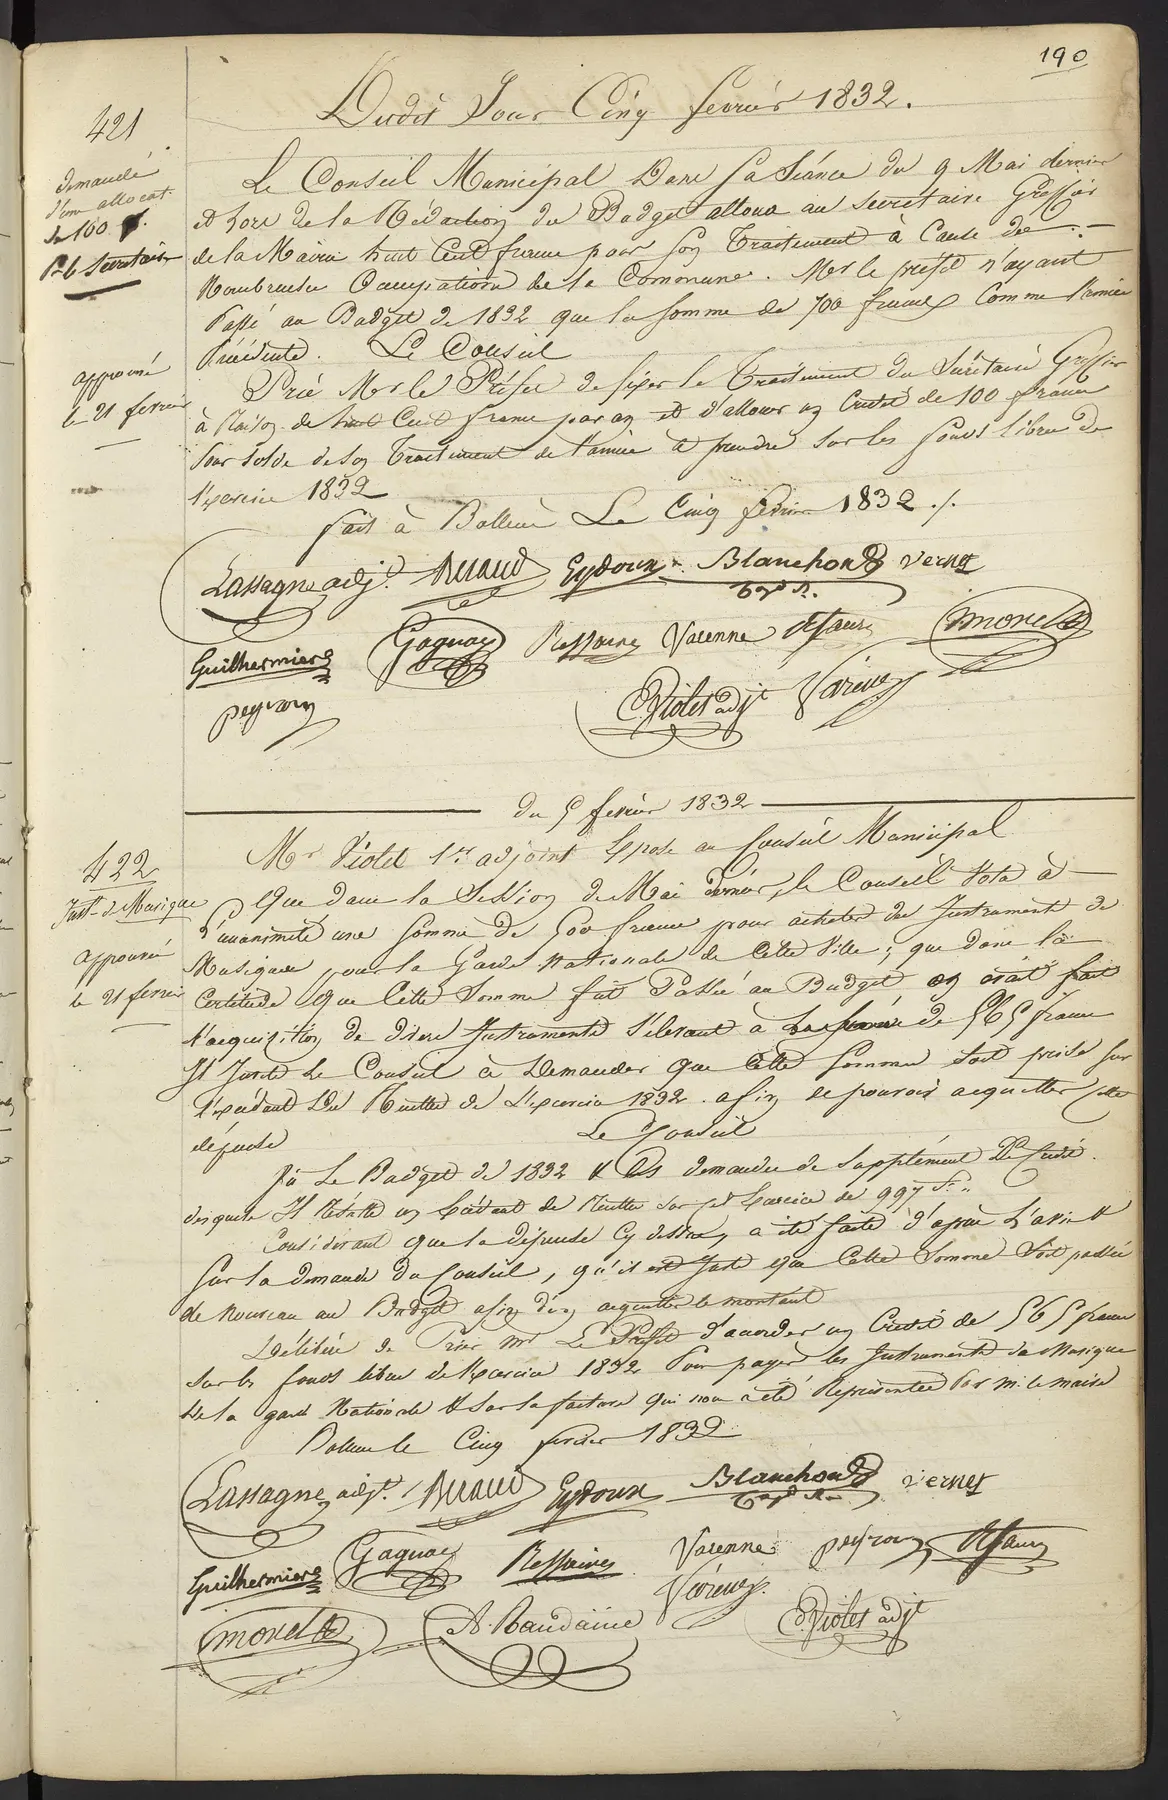 190
Dudit Jour Cinq fevrier 1832.
421
demande
d'une allocat.
de 100 f.
Pr le Secretaire
Le Conseil Municipal Dans sa Séance du 9 Mai dernier
et hors de la Rédaction du Budget alloua au secretaire Greffier
de la Mairie huit Cent francs pour son Traitement à Cause des
Nombreuses Occupations de la Commune. Mr le prefet n'ayant
Passé au Budget de 1832 que la somme de 700 francs Comme l'année
Précédente. Le Conseil
approuvé
le 21 fevrier
Prie Mr le Préfet de fixer le Traitement du Secrétaire Greffier
à Raison de huit Cent francs par an et d'allouer un Credit de 100 francs
pour solde de son Traitement de l'année à prendre sur les fonds libres de
l'Exercice 1832
fait à Bollene Le Cinq fevrier 1832 ./.
Lassagne adjt. Renaud Eydoux Blanchond Vernet
Guilhermiers Gagnay Ressaires Varenne Morel
peyron C. Violet adjt
du 5 fevrier 1832
422
Inst. de Musique
approuvé
le 21 fevrier
Mr Violet 1er adjoint Expose au Conseil Municipal
Que dans la Session de Mai dernier, le Conseil Vota à
l'unanimité une Somme de 500 francs pour acheter des Instruments de
Musique pour la Garde Nationale de Cette Ville; que dans la
Certitude que Cette Somme fut Passée au Budget on avait fait
l'acquisition de divers Instruments s'élevant à la somme de 565 francs
Il Invite Le Conseil à Demander que Cette Somme soit prise sur
l'Excédant des Recettes de l'Exercice 1832 afin de pouvoir acquitter cette
dépense Le Conseil
Vu Le Budget de 1832 & les demandes de Supplément De Crédit.
desquels Il Résulte un Excédent de Recette sur cet Exercice de 997 f.
Considerant que la dépense Cy dessus, a été faite d'après L'avis &
sur la demande du Conseil, qu'il est Juste que Cette Somme Soit passée
de nouveau au Budget afin d'en acquitter le montant
Délibère de Prier Mr Le Préfet d'accorder un Credit de 565 francs
sur les fonds libres de l'Exercice 1832 Pour payer les Instruments de Musique
de la garde Nationale & sur la facture qui nous a été Représentée Par M. le maire
Bollene le Cinq fevrier 1832
Lassagne adjt. Renaud Eydoux Blanchond Vernet
Guilhermiers Gagnay Ressaires Varenne peyron
Morel A. Baudaine C. Violet adjt